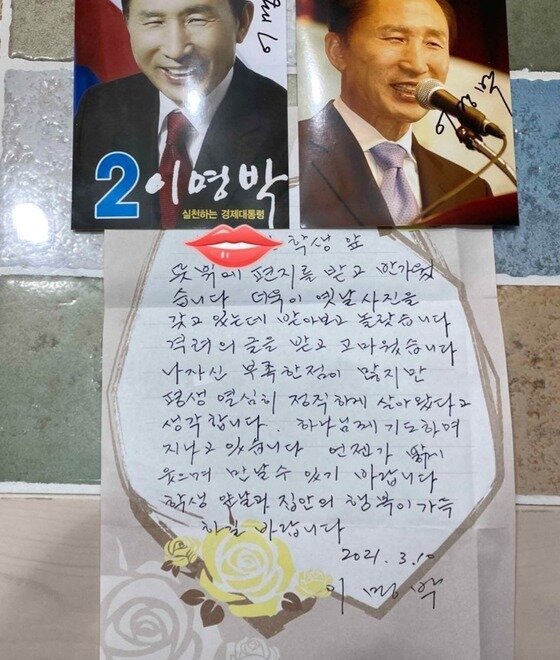 2 이명박
실천하는 경제대통령
이명박
학생 앞
뜻밖에 편지를 받고 반가웠
습니다 더욱이 옛날사진을
갖고 있는데 받아보고 놀랐습니다
격려의 글을 받고 고마웠습니다
나자신 부족한점이 많지만
평생 열심히 정직하게 살아왔다고
생각합니다. 하나님께 기도하며
지나고 있습니다 언젠가 밝게
웃으며 만날수 있기 바랍니다
학생 앞날과 집안의 행복이 가득
하길 바랍니다
2021. 3. 10
이 명 박